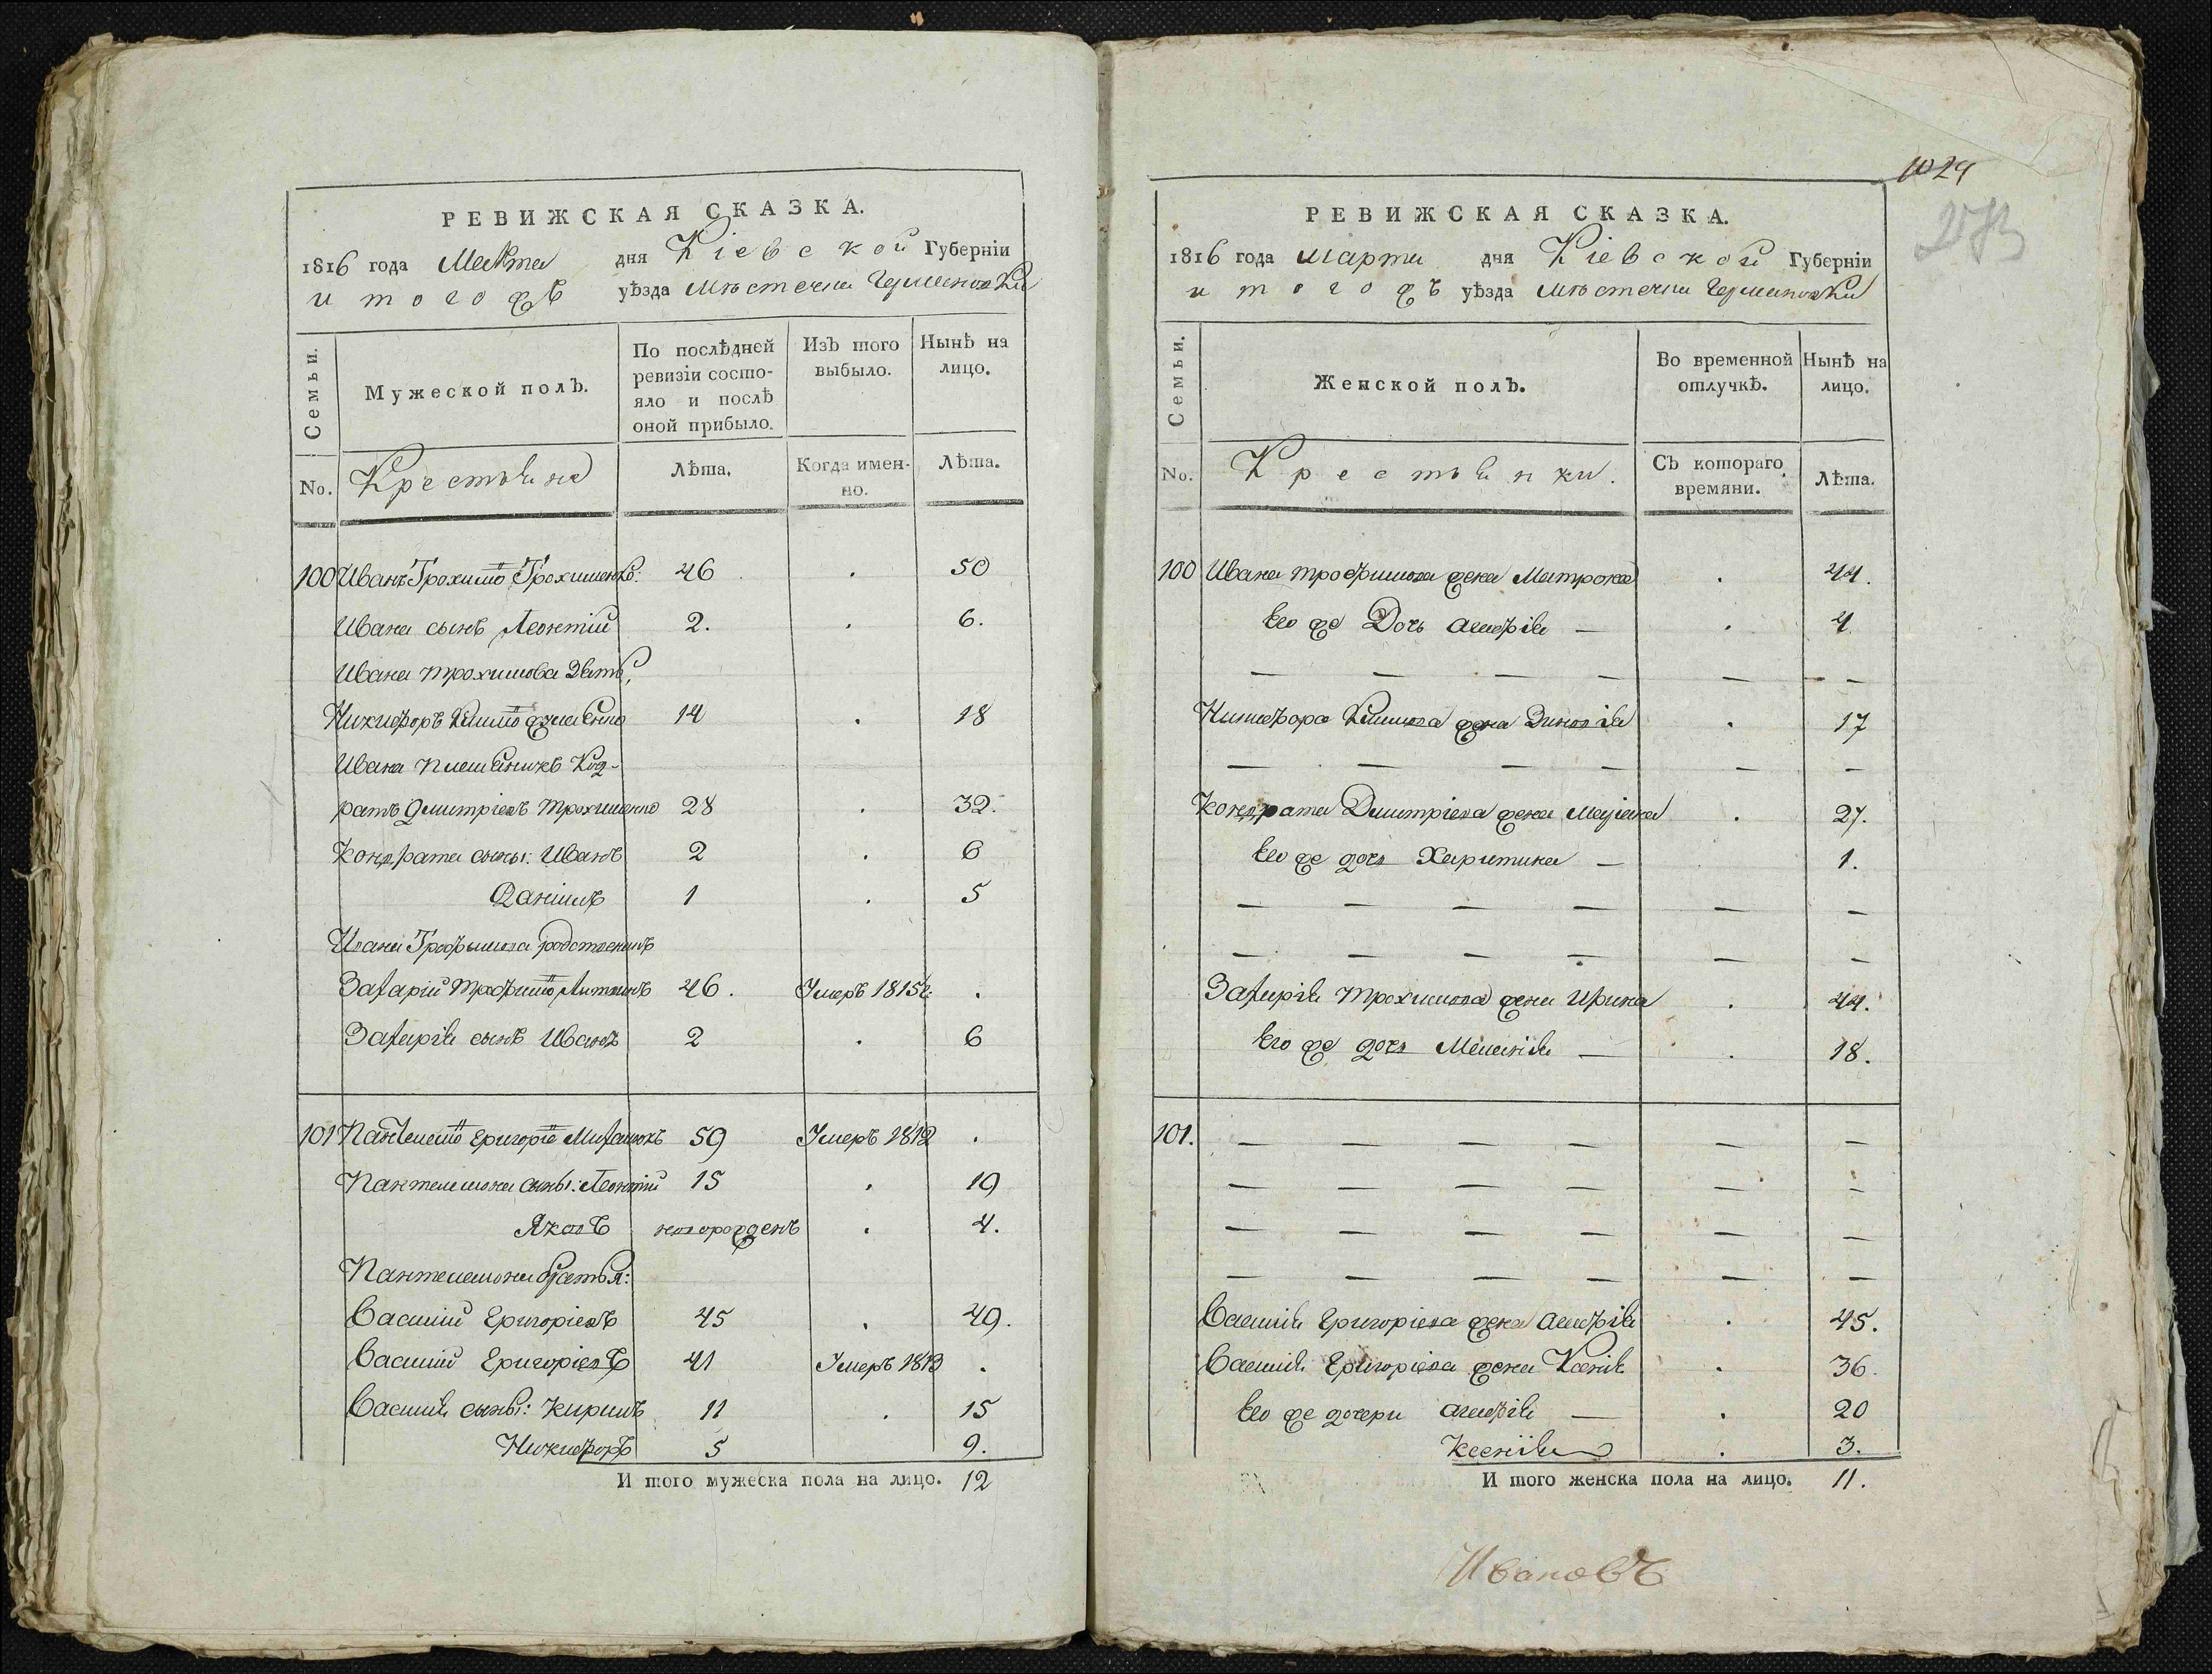 РЕВИЖСКАЯ СКАЗКА.
1816 года Марта дня Кіевской Губерніи
и того жъ уѣзда мѣстечка Германовки
Семьи. Мужеской полЪ. По послѣдней ревизіи состояло и послѣ оной прибыло. ИзЪ того выбыло. НынѢ на лицо.
No. Крестьяне Лѣта. Когда именно. Лѣта.
100 Иванъ Трохимо Трохименко: 46 . 50
Ивана сынъ Леонтій 2. . 6.
Ивана трохимова зять,
Никифоръ 14 . 18
Ивана племѣникъ Код-
ратъ Дмитріевъ Трохименко 28 . 32.
Кондрата сыны: Иванъ 2 . 6
Даніилъ 1 . 5
Ивана Трофимова родственикъ
Захарій Трофимо 46. Умеръ 1815г. .
Захарія сынъ Иванъ 2 . 6
101 Пантелемо Григоріе 59 Умеръ 1812 .
Пантелемона сыны: Леонтій 15 . 19
Яковъ новорожденъ . 4.
Пантелемона братья:
Василій Григоріевъ 45 . 49.
Василій Григоріевъ 41 Умеръ 1813 .
Василія сыны: Кирилъ 11 . 15
Никифоръ 5 9.
И того мужеска пола на лицо. 12
1024
РЕВИЖСКАЯ СКАЗКА.
1816 года марта дня Кіевской Губерніи
и того жъ уѣзда мѣстечка Германовки
Семьи. Женской полЪ. Во временной отлучкѢ. НынѢ на лицо.
No. Крестьянки. СЪ котораго времяни. Лѣта.
100 Ивана трофимова жена Матрона . 44.
Его же Дочь Агафія — . 4.
— — — — — —
Никифора жена Зиновія . 17
— — — — — —
Кондрата Дмитріева жена Маріана . 27.
Его же дочь Харитина — 1.
— — — — — —
— — — — — —
Захарія Трохимова жена Ирина . 44.
Его же дочь Меланія — . 18.
101. — — — — — —
— — — — — —
— — — — — —
— — — — — —
Василія Григоріева жена Агафія . 45.
Василія Григоріева жена Ксенія . 36.
Его же дочери Агафія — . 20
Ксенія . 3.
И того женска пола на лицо. 11.
Ивановъ